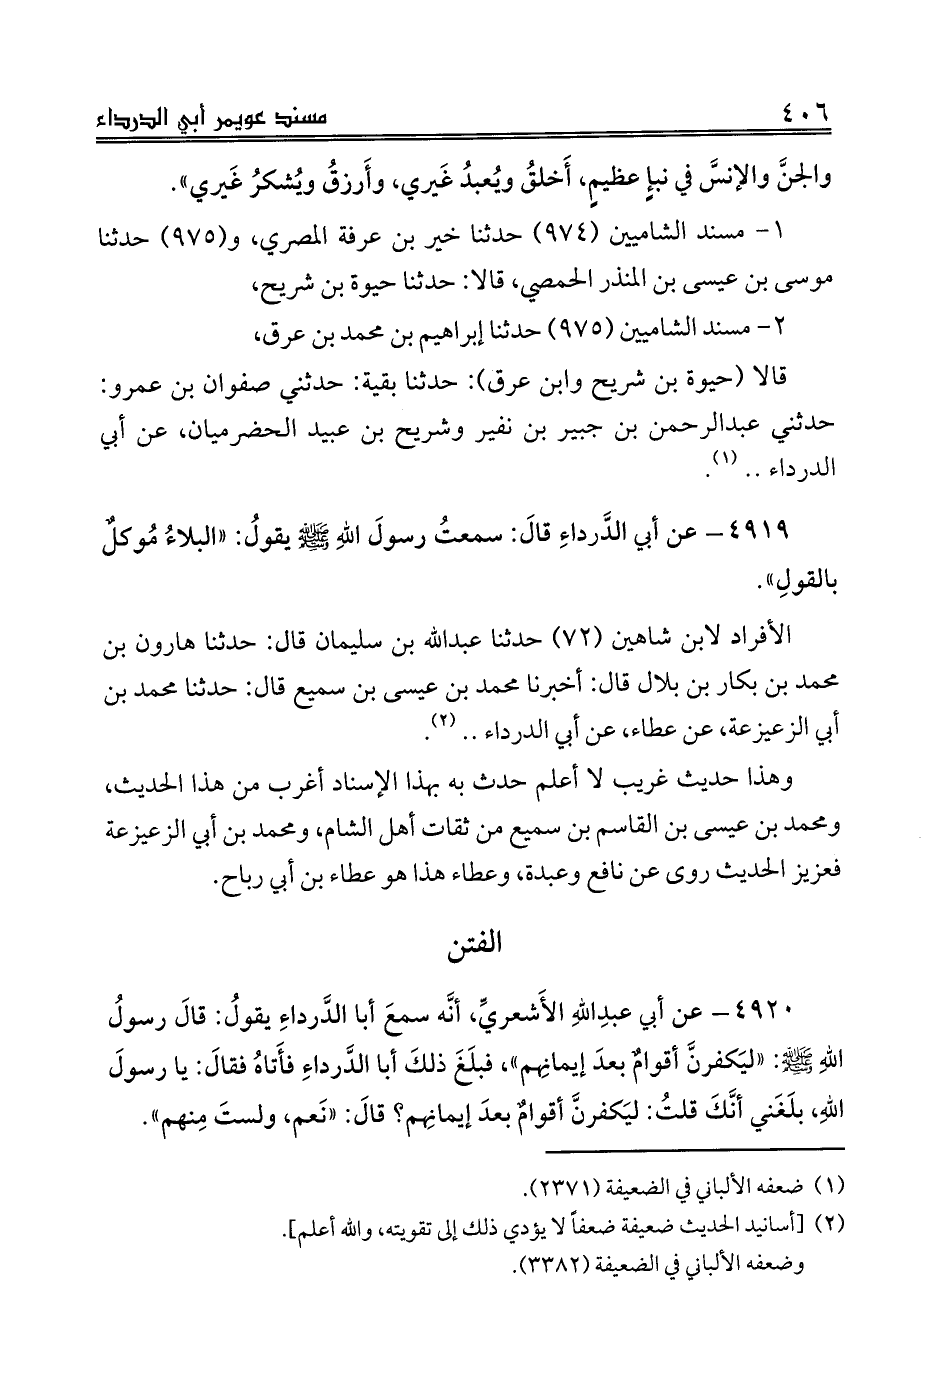 ٤٠٦ مسند عويمر أبي الدرداء
والجنَّ والإنسَّ في نبإٍ عظيمٍ، أَخلقُ ويُعبدُ غَيري، وأَرزقُ ويُشكرُ غَيري».
١- مسند الشاميين (٩٧٤) حدثنا خير بن عرفة المصري، و(٩٧٥) حدثنا
موسى بن عيسى بن المنذر الحمصي، قالا: حدثنا حيوة بن شريح،
٢- مسند الشاميين (٩٧٥) حدثنا إبراهيم بن محمد بن عرق،
قالا (حيوة بن شريح وابن عرق): حدثنا بقية: حدثني صفوان بن عمرو:
حدثني عبدالرحمن بن جبير بن نفير وشريح بن عبيد الحضرميان، عن أبي
الدرداء .. (١).
٤٩١٩- عن أبي الدَّرداءِ قالَ: سمعتُ رسولَ اللهِ ﷺ يقولُ: «البلاءُ مُوكلٌ
بالقولِ».
الأفراد لابن شاهين (٧٢) حدثنا عبدالله بن سليمان قال: حدثنا هارون بن
محمد بن بكار بن بلال قال: أخبرنا محمد بن عيسى بن سميع قال: حدثنا محمد بن
أبي الزعيزعة، عن عطاء، عن أبي الدرداء .. (٢).
وهذا حديث غريب لا أعلم حدث به بهذا الإسناد أغرب من هذا الحديث،
ومحمد بن عيسى بن القاسم بن سميع من ثقات أهل الشام، ومحمد بن أبي الزعيزعة
فعزيز الحديث روى عن نافع وعبدة، وعطاء هذا هو عطاء بن أبي رباح.
الفتن
٤٩٢٠- عن أبي عبدِاللهِ الأَشعريِّ، أنَّه سمعَ أبا الدَّرداءِ يقولُ: قالَ رسولُ
اللهِ ﷺ: «ليَكفرنَّ أقوامٌ بعدَ إيمانِهم»، فبلَغَ ذلكَ أبا الدَّرداءِ فأَتاهُ فقالَ: يا رسولَ
اللهِ، بلَغَني أنَّكَ قلتُ: ليَكفرنَّ أقوامٌ بعدَ إيمانِهم؟ قالَ: «نَعم، ولستَ مِنهم».
(١) ضعفه الألباني في الضعيفة (٢٣٧١).
(٢) [أسانيد الحديث ضعيفة ضعفاً لا يؤدي ذلك إلى تقويته، والله أعلم].
وضعفه الألباني في الضعيفة (٣٣٨٢).